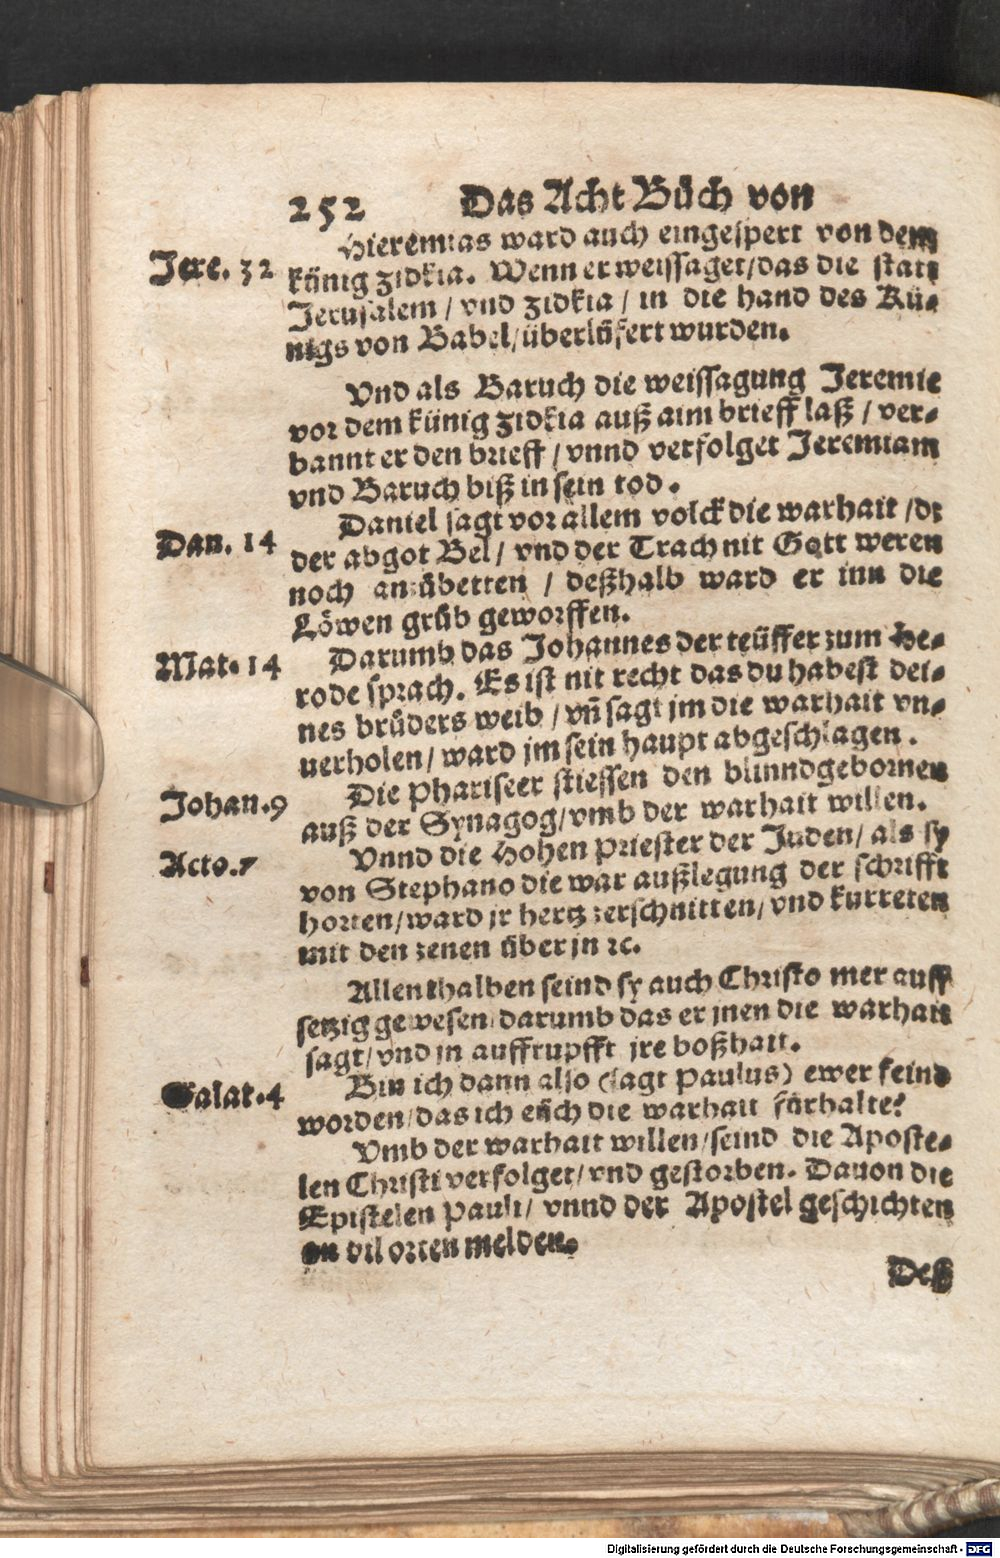 252 Das Acht Bůch von
Hieremias ward auch eingespert von dem
Jere. 32
künig zidkia. Wenn er weissaget/das die statt
Jerusalem / vnd zidkia / in die hand des Kü-
nigs von Babel/überlüfert wurden.
Vnd als Baruch die weissagung Jeremie
vor dem künig zidkia auß aim brieff laß / ver-
bannt er den brieff / vnnd verfolget Jeremiam
vnd Baruch biß in sein tod.
Daniel sagt vor allem volck die warhait /dz
Dan. 14
der abgot Bel / vnd der Trach nit Gott weren
noch anzůbetten / deßhalb ward er inn die
Löwen grůb geworffen.
Mat. 14
Darumb das Johannes der teüffer zum He-
rode sprach. Es ist nit recht das du habest dei-
nes brůders weib / vñ sagt jm die warhait vn-
uerholen/ ward jm sein haupt abgeschlagen.
Johan. 9
Die Phariseer stiessen den blinndgebornen
auß der Synagog/vmb der warhait willen.
Acto. 7
Vnnd die Hohen Priester der Juden/ als sy
von Stephano die war außlegung der schrifft
horten/ward jr hertz zerschnitten/vnd kurreten
mit den zenen über jn ꝛc.
Allenthalben seind sy auch Christo mer auff
setzig gewesen/darumb das er jnen die warhait
sagt/vnd jn auffrupfft jre boßhait.
Galat. 4
Bin ich dann also (sagt Paulus) ewer feind
worden/das ich eüch die warhait fürhalte?
Vmb der warhait willen/seind die Aposte-
len Christi verfolget/vnd gestorben. Dauon die
Epistelen Pauli/ vnnd der Apostel geschichten
an vil orten melden.
Deß
Digitalisierung gefördert durch die Deutsche Forschungsgemeinschaft - DFG